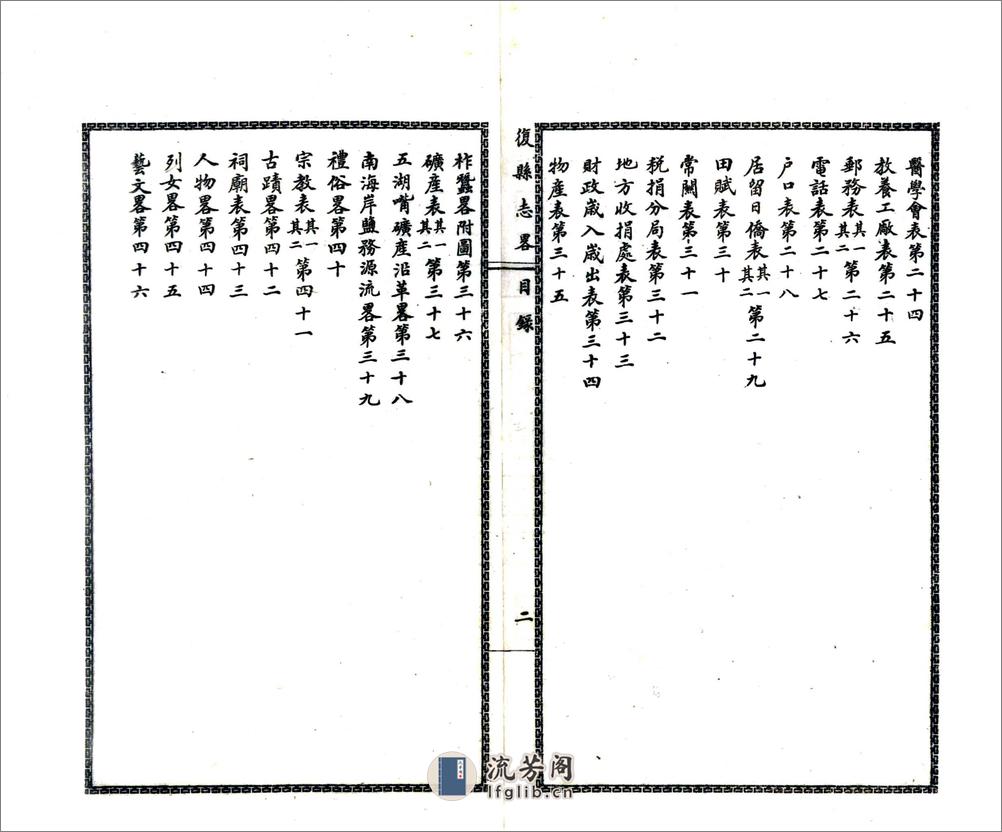 醫學會表第二十四
教養工廠表第二十五
郵務表其一其二第二十六
電話表第二十七
户口表第二十八
居留日僑表其一其二第二十九
田賦表第三十
常關表第三十一
税捐分局表第三十二
地方收捐處表第三十三
財政歲入歲出表第三十四
物産表第三十五
復縣志畧
目録
二
柞蠶畧附圖第三十六
礦產表其一其二第三十七
五湖嘴礦產沿革畧第三十八
南海岸鹽務源流畧第三十九
禮俗畧第四十
宗教表其一其二第四十一
古蹟畧第四十二
祠廟表第四十三
人物畧第四十四
列女畧第四十五
藝文畧第四十六
流芳阁
lfglib.cn